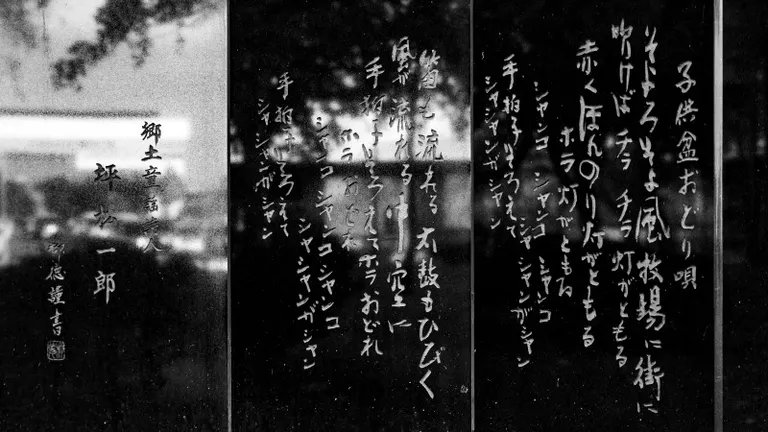 子供盆おどり唄
そよろそよ風牧場に街に
吹けばチラチラ灯がともる
赤くほんのり灯がともる
ホラ灯がともる
シャンコ シャンコ シャンコ
シャシャンがシャン
手拍子そろえて
シャシャンがシャン
笛も流れる太鼓もひびく
風も流れる中空に
手拍子そろえてホラおどれ
ホラおどれ
シャンコ シャンコ シャンコ
シャシャンがシャン
手拍子そろえて
シャシャンがシャン
郷土童謡詩人
坪松一郎